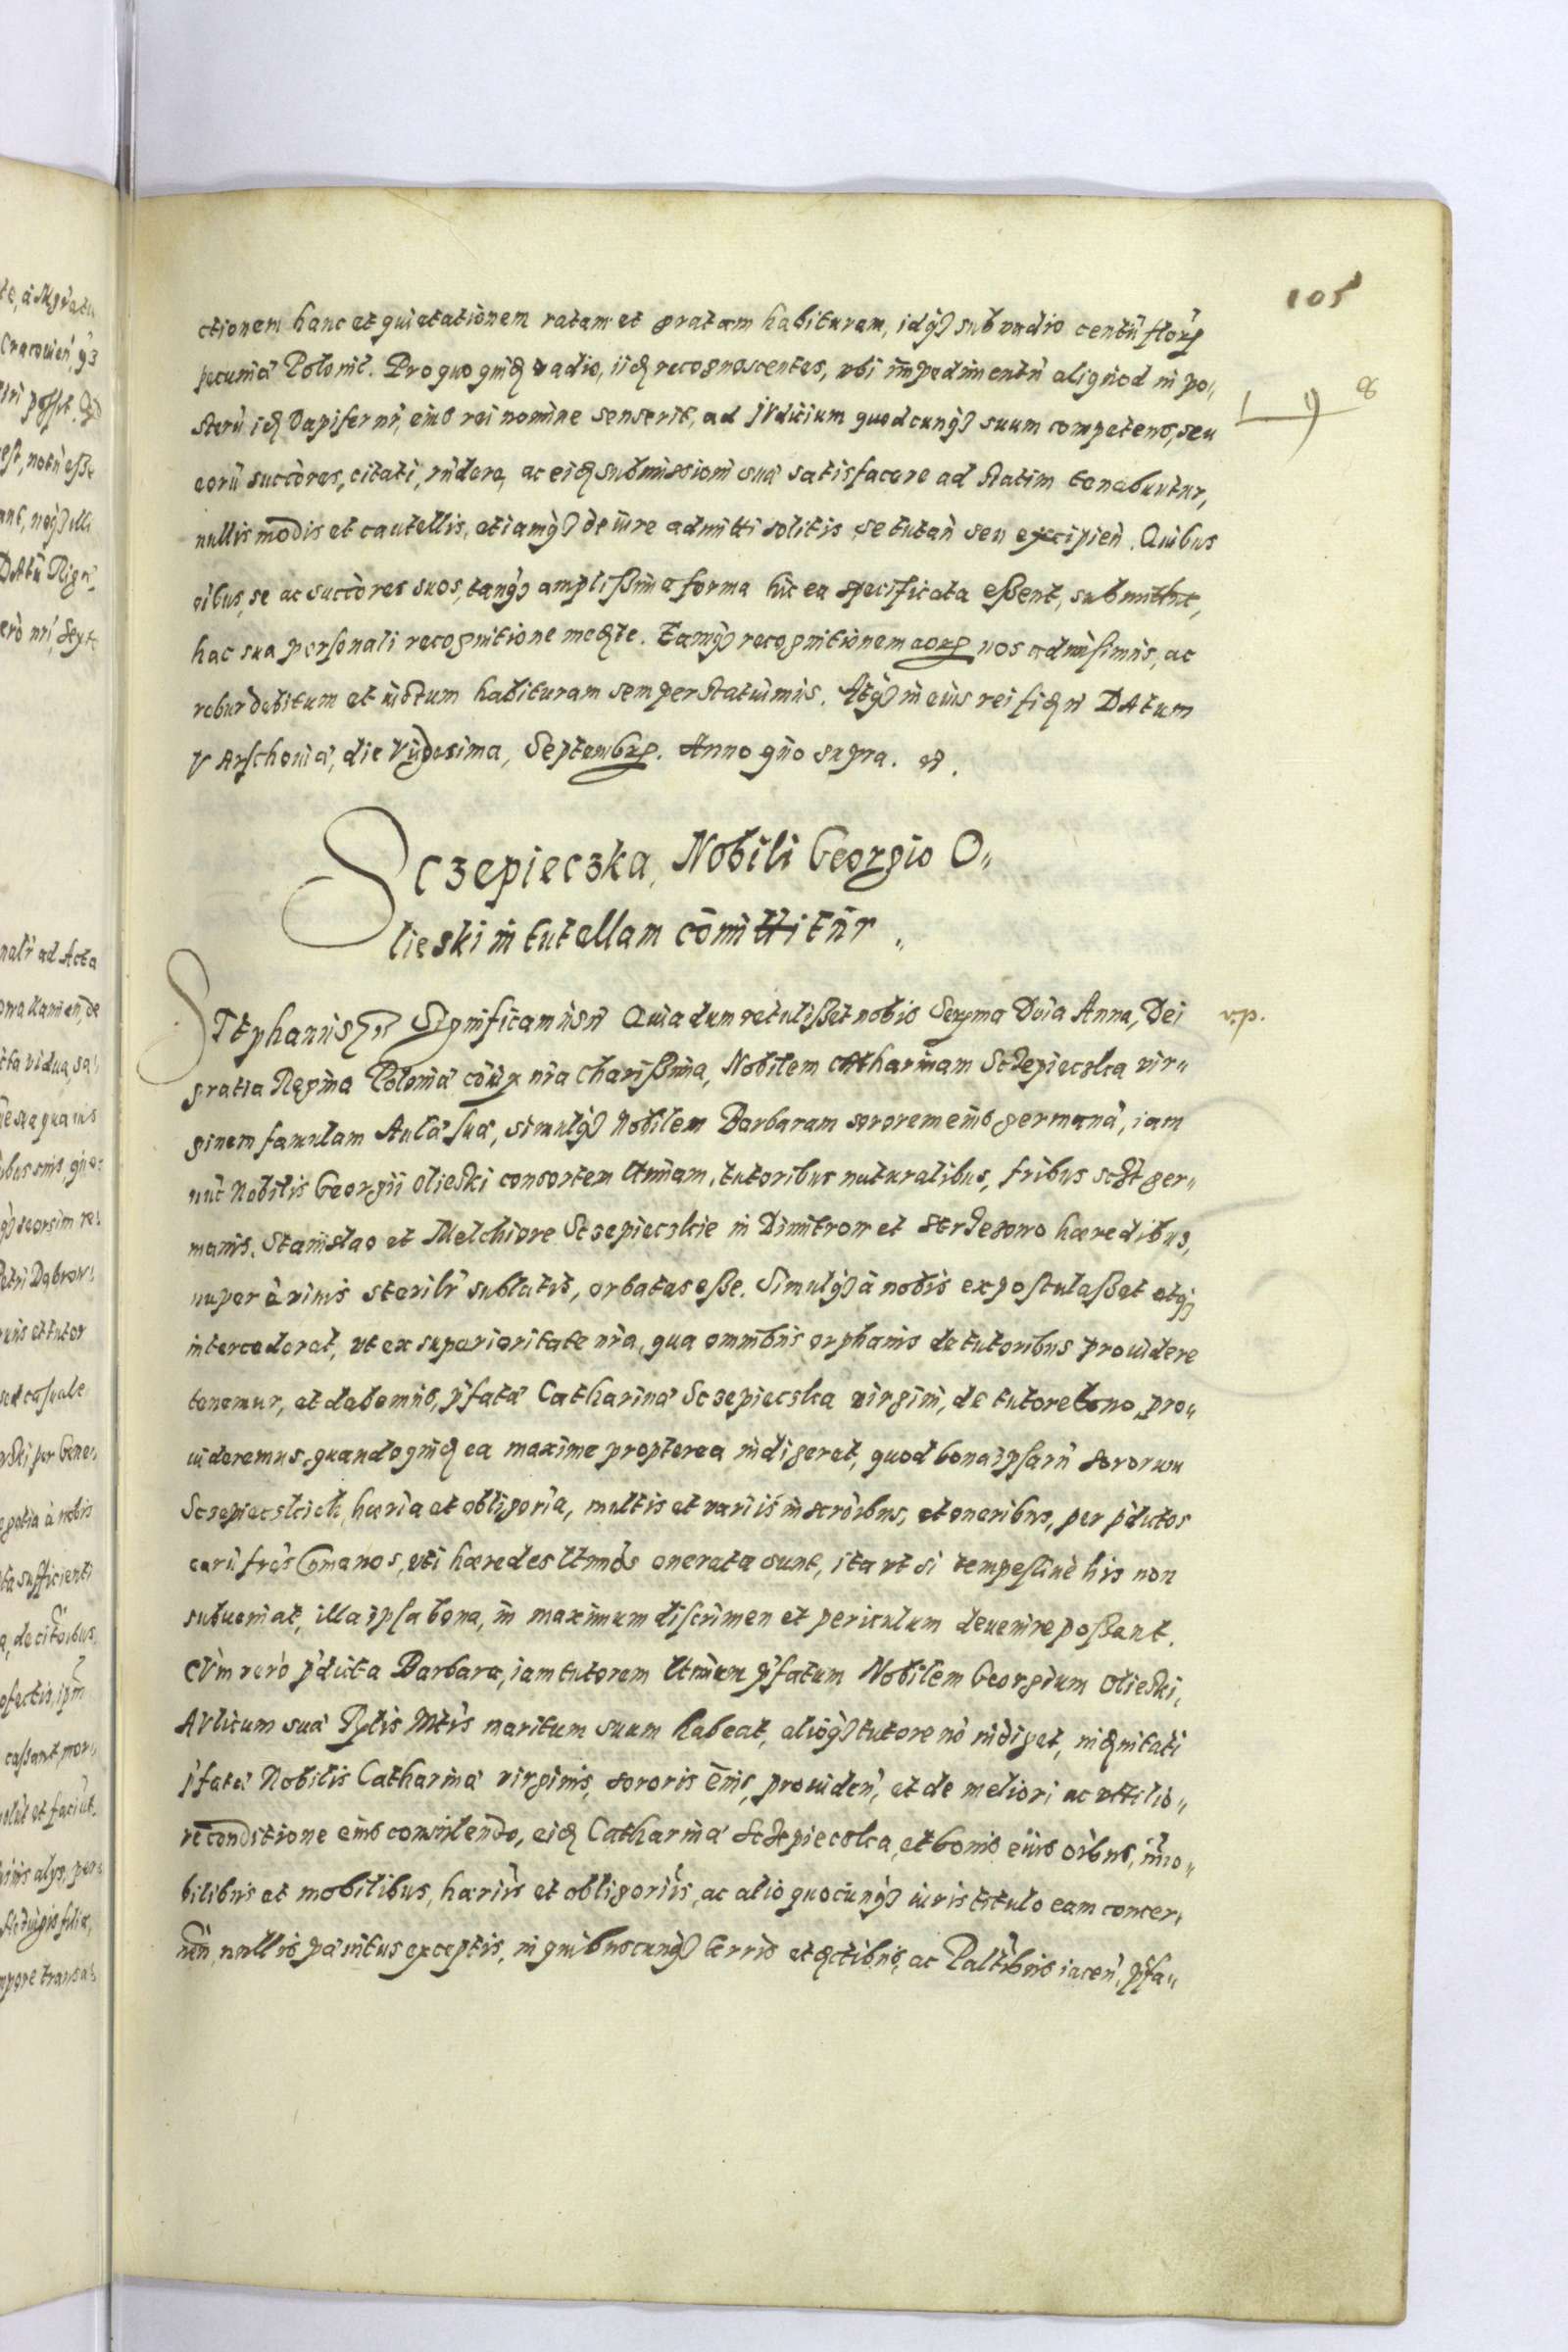 105
ctionem hanc et quietationem ratam et gratam habituram, idq sub vadio centũ florꝝ
pecuniæ Polonic. Pro quo quidẽ vadio, iidẽ recognoscentes, vbi impedimentũ aliquod in po„
sterũ idẽ Dapifer nr̃, eius rei nomine senserit, ad jVdicium quodcunq suum competens, seu
eorũ succ̃ores, citati, rñdere, ac eidẽ submissioni suæ satisfacere ad statim tenebuntur,
nullis modis et cautellis, etiamq de iure admitti solitis se tutañ seu excipieñ. Quibus
oĩbus, se ac succ̃ores suos, tanq amplißima forma hic ea specificata eßent, submittũt,
hac sua personali recognitione medẽte. Eamq recognitionem eorꝝ nos admisimus, ac
robur debitum et iustum habituram semper statuimus. Atq in eius rei fidẽ ñ DAtum
VArschouiæ, die Vigesima, Septembrꝝ. Anno quo supra. &.
Sczepieczka, Nobili Georgio O„
lieski in tutellam com̃ittitur„
STephanus ñ Significamus ñ Quia dum retulißet nobis Serma Dña Anna, Dei
v.p.
gratia Regina Poloniæ coniux nr̃a charißima, Nobilem Catharinam Sczepieczka vir„
ginem famulam Aulæ suæ, simulq Nobilem Barbaram sororem eius germanã, iam
nũc Nobilis Georgii Olieski consortem ltimam, tutoribus naturalibus, fribus scꝫ ger„
manis, Stanislao et Melchiore Sczepieczkie in Dimitrow et haeredibus,
nuper è viuis sterilr̃ sublatis, orbatas eße. Simulq à nobis expostulaßet etq
intercederet, vt ex superioritate nr̃a, qua omnibus orphanis de tutoribus prouidere
tenemur, et debemus, p̃fatæ Catharinæ Sczepieczka virgini, de tutore bono, pro„
uideremus, quandoquidẽ ea maxime propterea indigeret, quod bona ipsarũ sororum
Sczepieczkich, hær̃ia et obligor̃ia, multis et variis inscr̃oibus, et oneribus, per p̃dictos
earũ fr̃es Gmanos, vti hæredes ltimos onerata sunt, ita vt si tempestiuè his non
subueniat, illa ipsa bona, in maximum discrimen et periculum deuenire poßent.
CVm verò p̃dicta Barbara, iam tutorem ltimum p̃fatum Nobilem Georgium Olieski,
AVlicum suæ Rgl̃is Mt̃is maritum suum habeat, alioq tutore nõ indiget, indẽnitati
p̃fatæ Nobilis Catharinæ virginis, sororis eius, prouideñ, et de meliori ac vttilio„
re conditione eius consulendo, eidẽ Catharinæ Sczepieczka, et bonis eius oĩbus, im̃o„
bilibus et mobilibus, hær̃iis et obligor̃iis, ac alio quocunq iuris titulo eam concer„
neñ, nullis pænitus exceptis, in quibuscunq terris et dctibus, ac Palt̃ibus iaceñ, p̃fa„